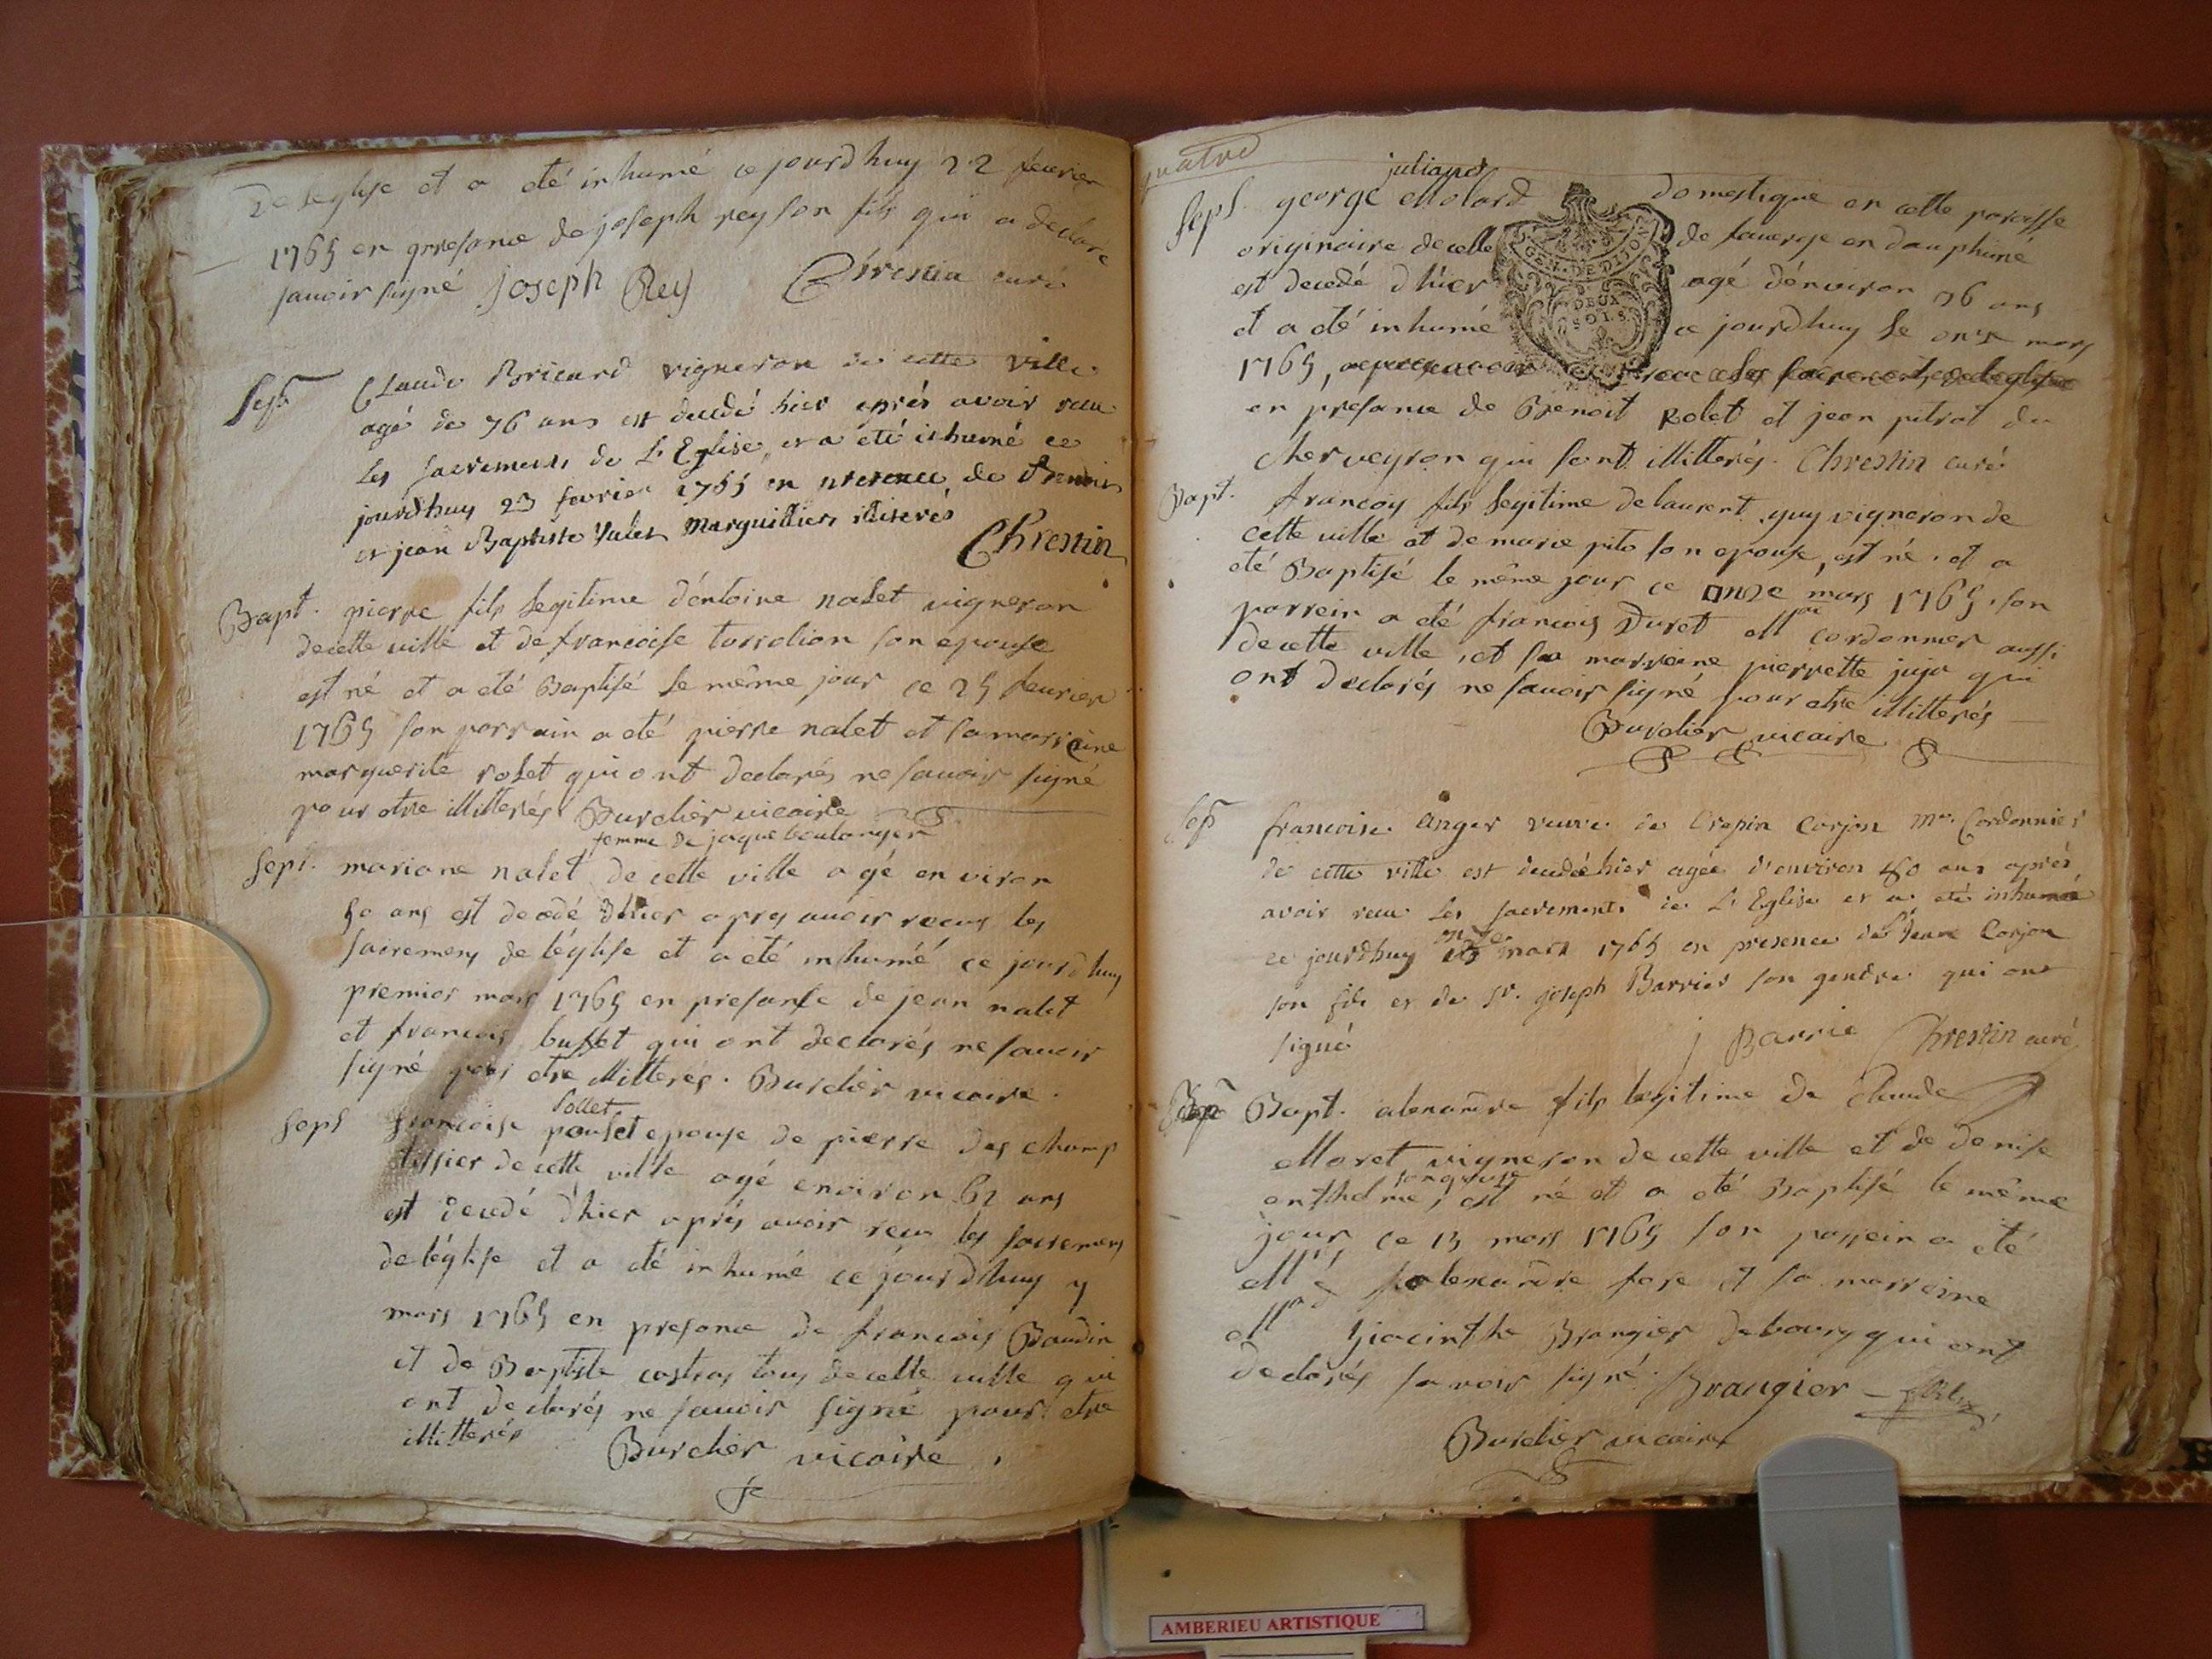 de leglise et a eté inhumé ce jourdhuy 22 feurier
1765 en presance de joseph rey son fils qui a declaré
sauoir signé Joseph Rey Chrestin curé
Sep. Claude Bricard vigneron de cette ville
agé de 76 ans est decedé hier aprés avoir recu
les sacrements de L'Eglise, et a eté inhumé ce
jourdhuy 23 fevrier 1765 en presence de
et jean Baptiste Marguilliers illiterés
Chrestin
Bapt. pierre fils legitime d'entoine nalet vigneron
de cette ville et de francoise torrolion son epouse
est né et a eté Baptisé le même jour ce 25 feurier
1765 son parrain a eté pierre nalet et sa marraine
marguerite rolet qui ont declarés ne sauoir signé
pour etre illitterés Burdier vicaire
femme de jaque boulanger
Sepl. mariane nalet de cette ville agé environ
50 ans est decedé d'hier apres auoir recus les
sacremens de l'église et a eté inhumé ce jourdhuy
premier mars 1765 en presanse de jean nalet
et francois buffet qui ont declarés ne sauoir
signé pour etre illitterés. Burdier vicaire.
Sollet
Sepl francoise epouse de pierre des champ
tissier de cette ville agé environ 62 ans
est decedé d'hier aprés avoir recu les sacremens
de l'église et a eté inhumé ce jourdhuy
mars 1765 en presance de francois Baudin
et de Baptiste tous de cette ville qui
ont declarés ne sauoir signé pour etre
illitterés Burdier vicaire.
quatre
juliand
Sepl. george Molard domestique en cette paroisse
originaire de celle de fauerge en dauphiné
est decedé d'hier agé d'environ 76 ans
et a eté inhumé ce jourdhuy le onze mars
1765,
en presance de Benoit Rolet et jean pitrat de
cherveyron qui sont illitterés. Chrestin curé
Bapt. francoy fils legitime de laurent guy vigneron de
cette ville et de marie pito son epouse, est né et a
eté Baptisé le même jour ce onze mars 1765. son
parrein a eté francois Duret Mtre cordonnier aussi
de cette ville, et sa marreine pierrette juju qui
ont declarés ne sauoir signé pour etre illitterés
Burdier vicaire
Sep francoise anger veuve de Crepin Corjon Me. Cordonnier
de cette ville est decedée hier agée d'environ 80 ans aprés
avoir recu les sacrements de L'Eglise et a eté inhumée
ce jourdhuy onze mars 1765 en presence de Sr Jean Corjon
son fils et de Sr. joseph Barrier son gendre qui ont
signé J Barrie Chrestin curé
Bapt. alexandre fils legitime de Claude
Moret vigneron de cette ville et de denise
son epouse
enthelme, est né et a eté Baptisé le même
jour ce 13 mars 1765 son parrein a eté
alexandre et sa marreine
hiacinthe Brangier de bourg qui ont
declarés savoir signé. Brangier
Burdier vicaire
GEN. DE DIJON
DEUX
SOLS.
AMBERIEU ARTISTIQUE